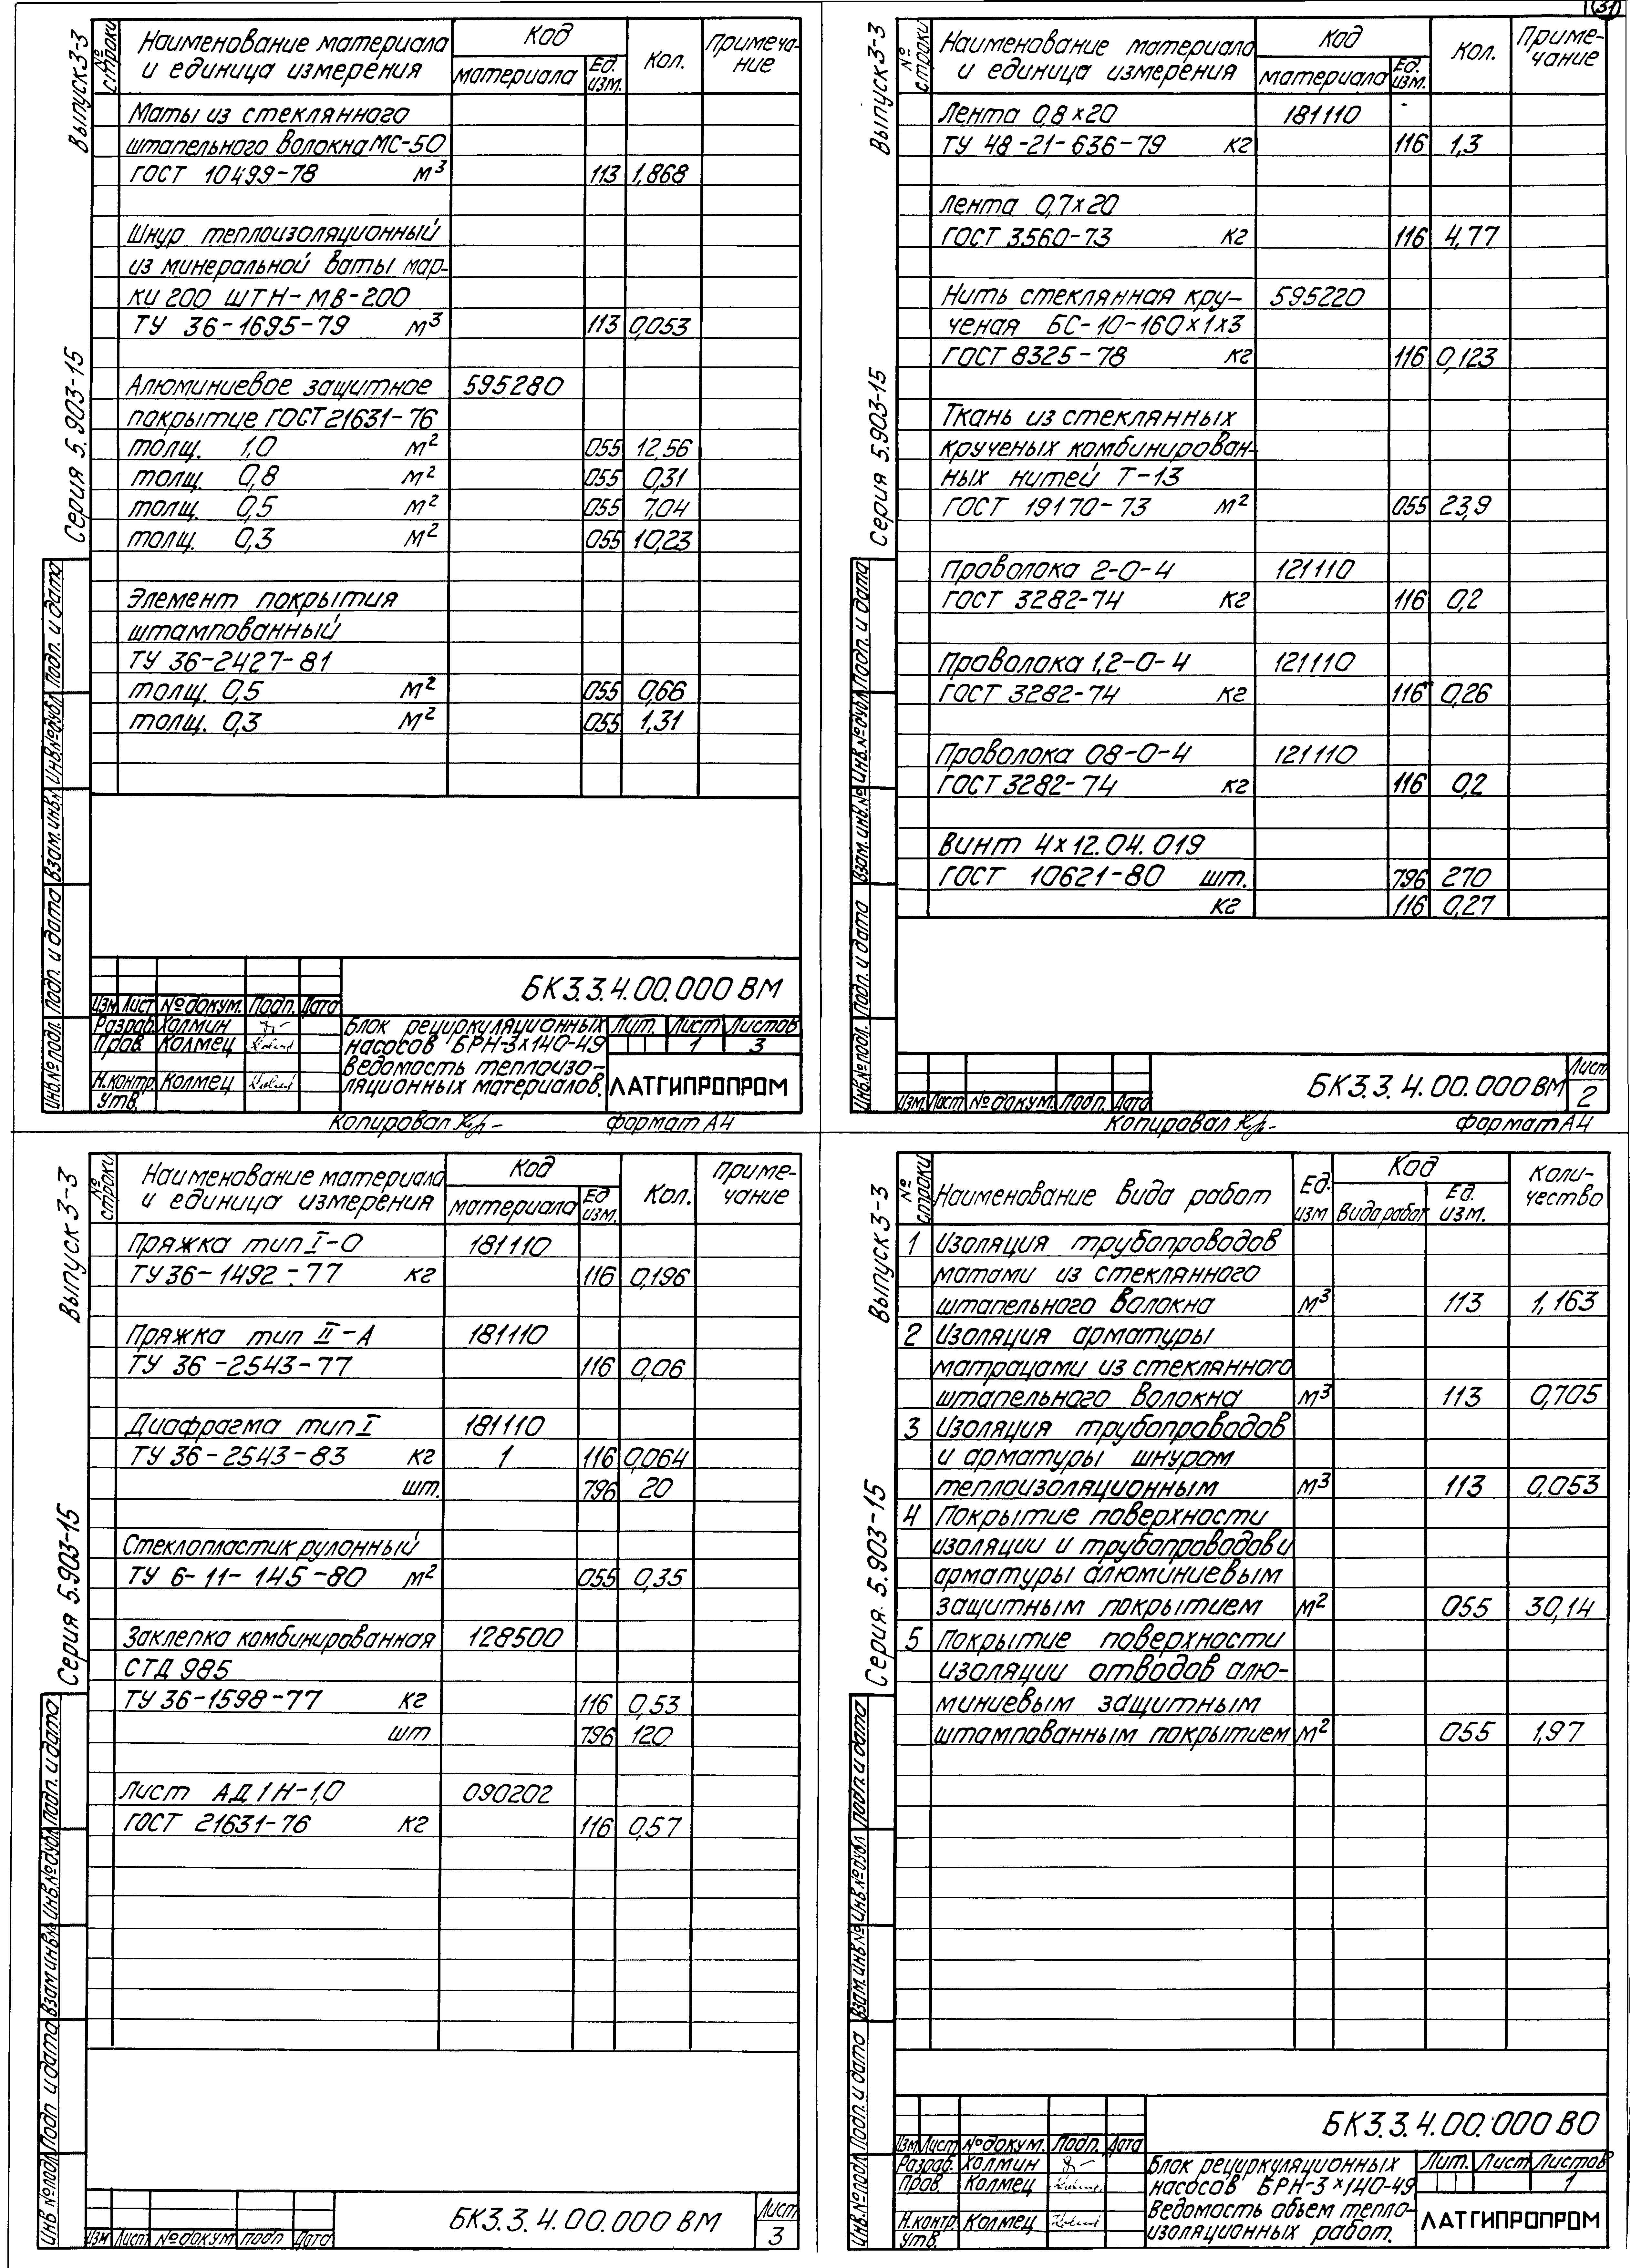 31
Выпуск 3-3
Серия 5.903-15
№ строки
Наименование материала и единица измерения
Код
материала
Ед. изм.
Кол.
Примеча-
ние
Маты из стеклянного
штапельного волокна МС-50
ГОСТ 10499-78 м³ 113 1,868
Шнур теплоизоляционный
из минеральной ваты мар-
ки 200 ШТН-МВ-200
ТУ 36-1695-79 м³ 113 0,053
Алюминиевое защитное 595280
покрытие ГОСТ 21631-76
толщ. 1,0 м² 055 12,56
толщ. 0,8 м² 055 0,31
толщ. 0,5 м² 055 7,04
толщ. 0,3 м² 055 10,23
Элемент покрытия
штампованный
ТУ 36-2427-81
толщ. 0,5 м² 055 0,66
толщ. 0,3 м² 055 1,31
Инв.№подл. Подп. и дата Взам.инв.№ Инв.№дубл. Подп. и дата
БК3.3.4.00.000 ВМ
Изм Лист № докум. Подп. Дата
Разраб. Халмин
Пров. Колмец
Н.контр. Колмец
Утв.
Блок рециркуляционных
насосов БРН-3×140-49
Ведомость теплоизо-
ляционных материалов.
Лит. Лист Листов
1 3
ЛАТГИПРОПРОМ
Копировал
Формат А4
Выпуск 3-3
Серия 5.903-15
№ строки
Наименование материала
и единица измерения
Код
материала
Ед. изм.
Кол.
Приме-
чание
Лента 0,8×20 181110
ТУ 48-21-636-79 кг 116 1,3
Лента 0,7×20
ГОСТ 3560-73 кг 116 4,77
Нить стеклянная кру- 595220
ченая БС-10-160×1×3
ГОСТ 8325-78 кг 116 0,123
Ткань из стеклянных
крученых комбинирован-
ных нитей Т-13
ГОСТ 19170-73 м² 055 23,9
Проволока 2-0-4 121110
ГОСТ 3282-74 кг 116 0,2
Проволока 1,2-0-4 121110
ГОСТ 3282-74 кг 116 0,26
Проволока 08-0-4 121110
ГОСТ 3282-74 кг 116 0,2
Винт 4×12.04.019
ГОСТ 10621-80 шт. 796 270
кг 116 0,27
Инв.№подл. Подп. и дата Взам.инв.№ Инв.№дубл. Подп. и дата
Изм. Лист № докум. Подп. Дата
БК3.3.4.00.000 ВМ
Лист
2
Копировал
Формат А4
Выпуск 3-3
Серия 5.903-15
№ строки
Наименование материала
и единица измерения
Код
материала
Ед. изм.
Кол.
Приме-
чание
Пряжка тип I-О 181110
ТУ 36-1492-77 кг 116 0,196
Пряжка тип II-А 181110
ТУ 36-2543-77 116 0,06
Диафрагма тип I 181110
ТУ 36-2543-83 кг 1 116 0,064
шт. 796 20
Стеклопластик рулонный
ТУ 6-11-145-80 м² 055 0,35
Заклепка комбинированная 128500
СТД 985
ТУ 36-1598-77 кг 116 0,53
шт 796 120
Лист АД1Н-1,0 090202
ГОСТ 21631-76 кг 116 0,57
Инв №подл Подп и дата Взам инв № Инв.№дубл Подп. и дата
Изм Лист № докум подп Дата
БК3.3.4.00.000 ВМ
Лист
3
Выпуск 3-3
Серия 5.903-15
№ строки
Наименование вида работ
Ед. изм
Код
вида работ
Ед. изм.
Коли-
чество
1 Изоляция трубопроводов
матами из стеклянного
штапельного волокна м³ 113 1,163
2 Изоляция арматуры
матрацами из стеклянного
штапельного волокна м³ 113 0,705
3 Изоляция трубопроводов
и арматуры шнуром
теплоизоляционным м³ 113 0,053
4 Покрытие поверхности
изоляции и трубопроводов и
арматуры алюминиевым
защитным покрытием м² 055 30,14
5 Покрытие поверхности
изоляции отводов алю-
миниевым защитным
штампованным покрытием м² 055 1,97
Инв.№подл. Подп. и дата Взам. инв.№ Инв.№дубл Подп. и дата
БК3.3.4.00.000 ВО
Изм Лист № докум. Подп. Дата
Разраб. Халмин
Пров. Колмец
Н.контр. Колмец
Утв.
Блок рециркуляционных
насосов БРН-3×140-49
Ведомость объем тепло-
изоляционных работ.
Лит. Лист Листов
1
ЛАТГИПРОПРОМ